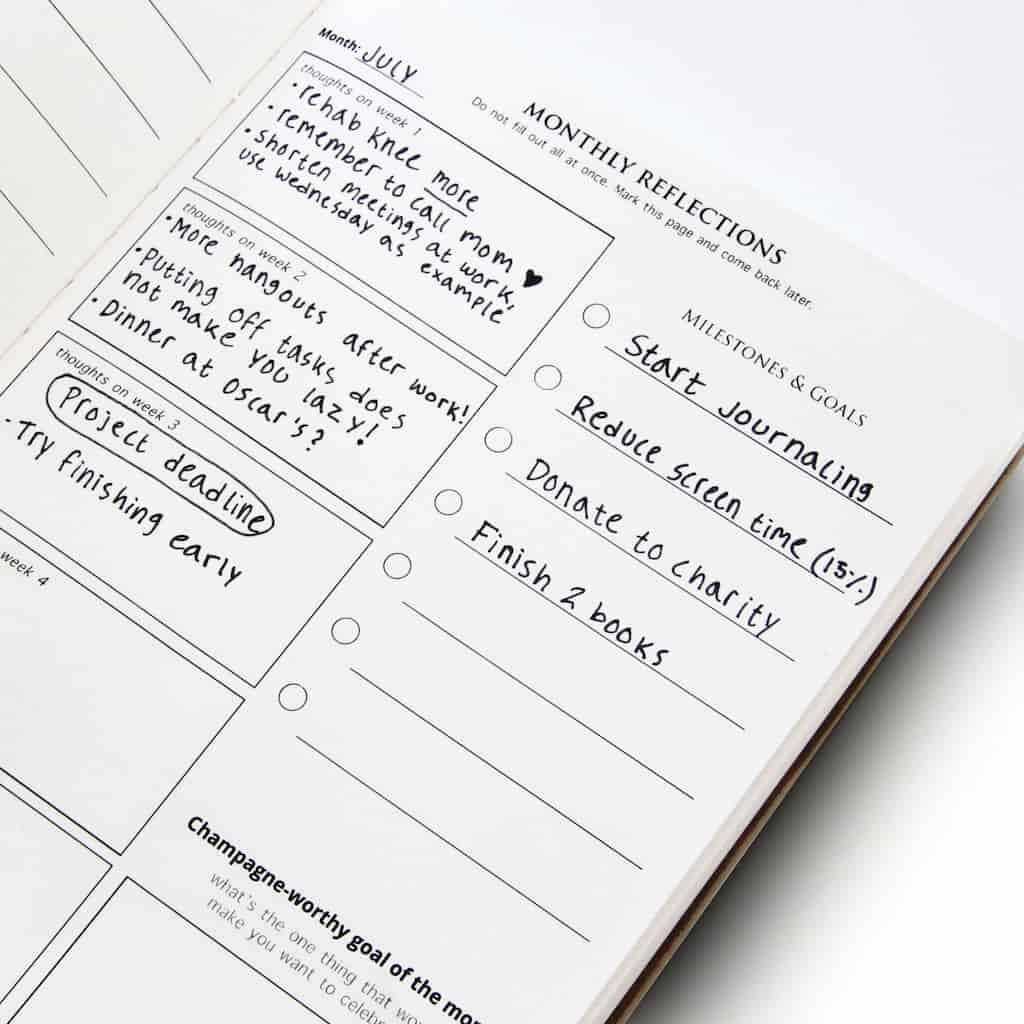 Month: JULY
MONTHLY REFLECTIONS
Do not fill out all at once. Mark this page and come back later.
thoughts on week 1
• rehab knee more
• remember to call mom ♥
• shorten meetings at work,
use wednesday as example
thoughts on week 2
• More hangouts after work!
• Putting off tasks does
not make you lazy!
• Dinner at Oscar's?
thoughts on week 3
Project deadline
- Try finishing early
week 4
MILESTONES & GOALS
Start journaling
Reduce screen time (15%)
Donate to charity
Finish 2 books
Champagne-worthy goal of the
what's the one thing that
make you want to